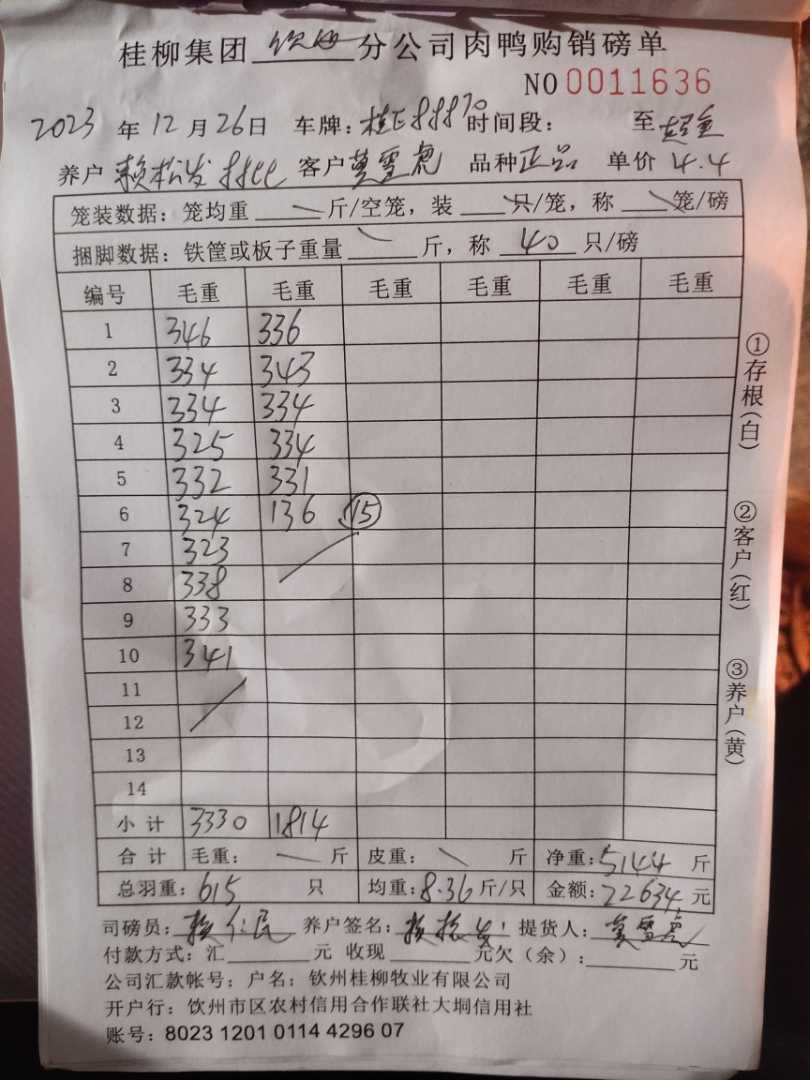 桂柳集团 钦州 分公司肉鸭购销磅单
NO 0011636
2023 年 12 月 26 日 车牌: 时间段: 至
养户 赖松发 客户 莫雪彪 品种 正品 单价 4.4
笼装数据: 笼均重 斤/空笼, 装 只/笼, 称 笼/磅
捆脚数据: 铁筐或板子重量 斤, 称 40 只/磅
编号 毛重 毛重 毛重 毛重 毛重 毛重
1 346 336
2 334 343
3 334 334
4 325 334
5 332 331
6 324 136 15
7 323
8 338
9 333
10 341
11
12
13
14
小计 3330 1814
合计 毛重: 斤 皮重: 斤 净重: 5144 斤
总羽重: 615 只 均重: 8.36 斤/只 金额: 22634 元
司磅员: 养户签名: 赖松发 提货人: 莫雪彪
付款方式: 汇 元 收现 元欠(余): 元
公司汇款帐号: 户名: 钦州桂柳牧业有限公司
开户行: 饮州市区农村信用合作联社大垌信用社
账号: 8023 1201 0114 4296 07
①存根(白)
②客户(红)
③养户(黄)